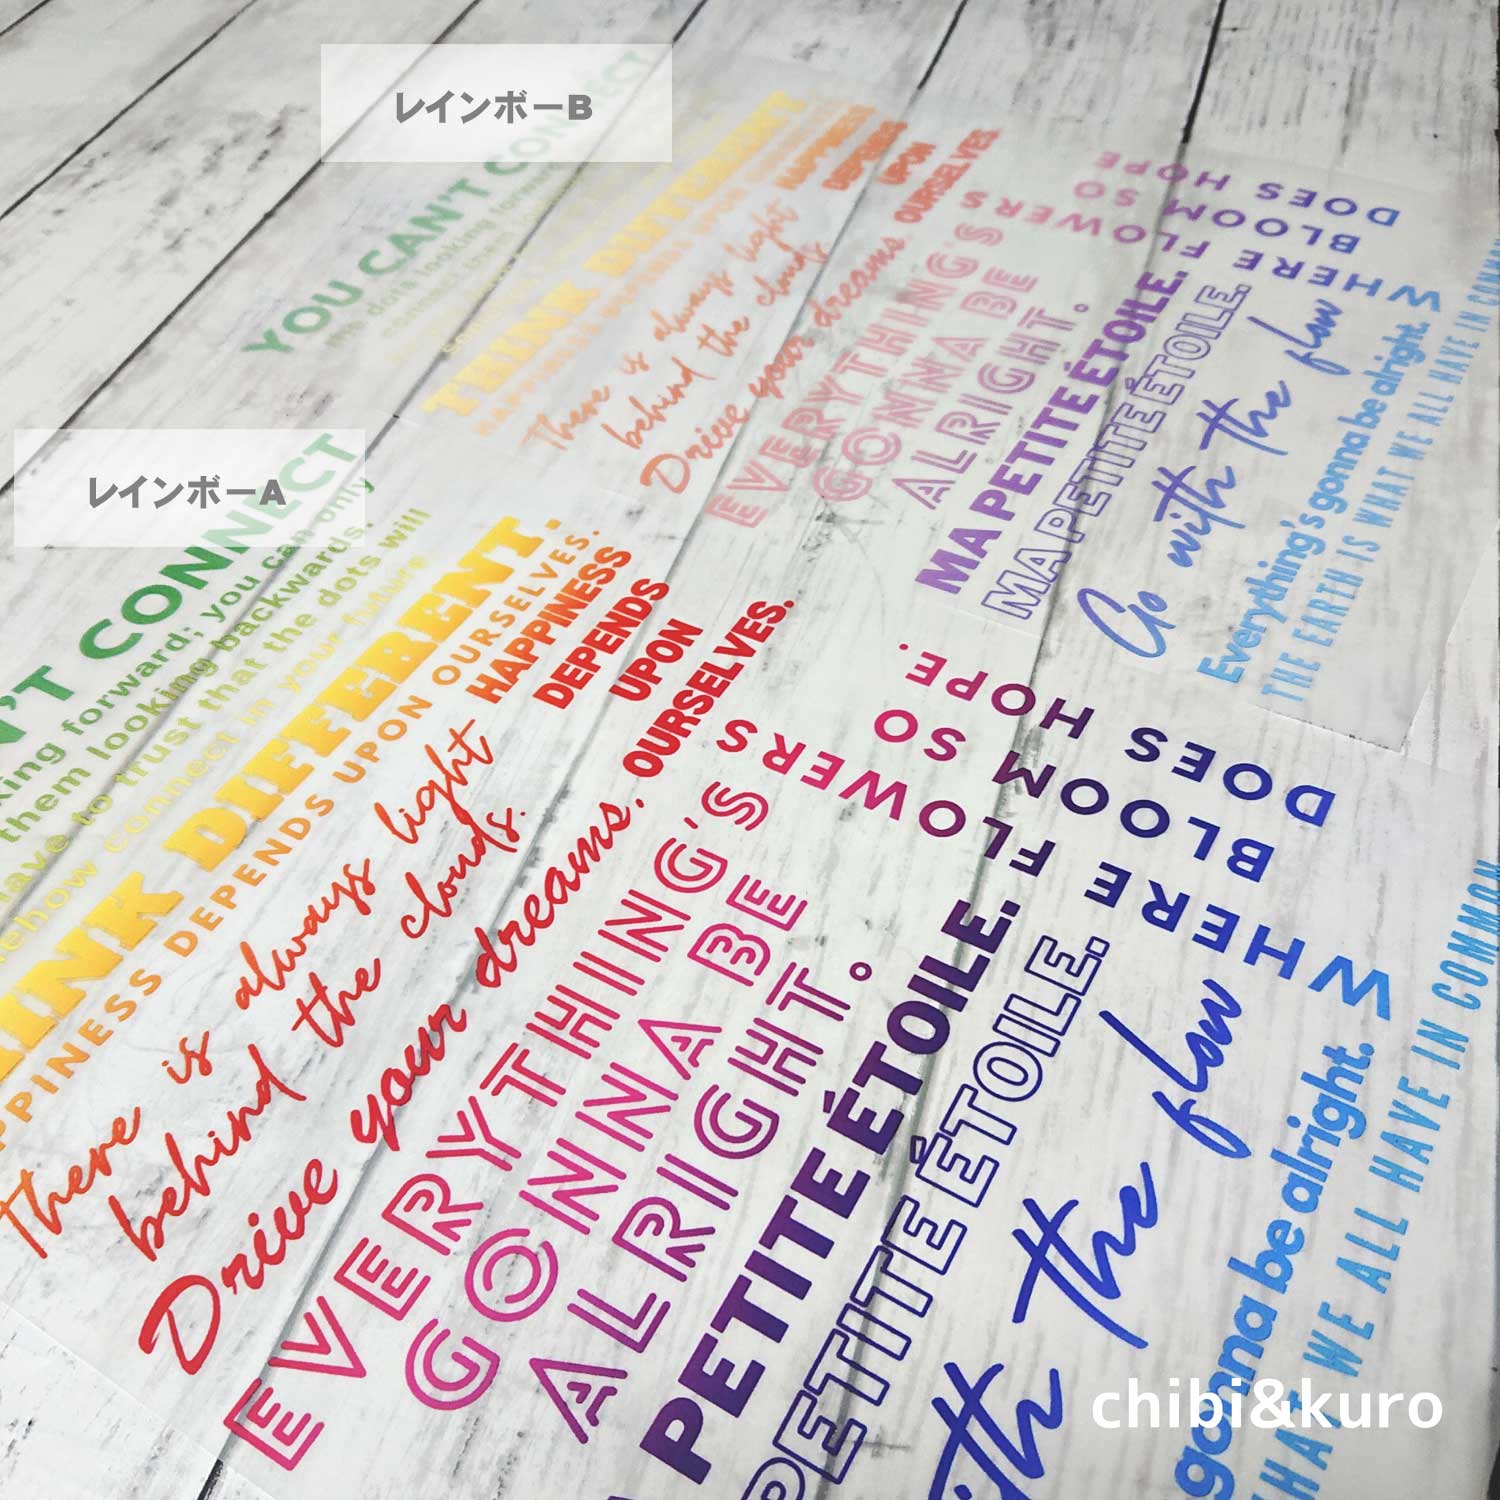 レインボーB
YOU CAN'T CONNECT
the dots looking forward
THINK DIFFERENT
HAPPINESS DEPENDS UPON
HAPPINESS
DEPENDS
UPON
OURSELVES
There is always light
behind the clouds
Drive your dreams
EVERYTHING'S
GONNA BE
ALRIGHT.
MA PETITE ÉTOILE.
MA PETITE ÉTOILE.
WHERE FLOWERS
BLOOM SO
DOES HOPE
Go with the flow
Everything's gonna be alright.
THE EARTH IS WHAT WE ALL HAVE IN COMMON
レインボーA
N'T CONNECT
king forward; you can only
them looking backwards.
have to trust that the dots will
ehow connect in your future
INK DIFFERENT.
PPINESS DEPENDS UPON OURSELVES.
HAPPINESS
DEPENDS
UPON
OURSELVES.
There is always light
behind the clouds.
Drive your dreams.
EVERYTHING'S
GONNA BE
ALRIGHT.
PETITE ÉTOILE.
PETITE ÉTOILE.
WHERE FLOWERS
BLOOM SO
DOES HOPE.
ith the flow
gonna be alright.
HAT WE ALL HAVE IN COMMON
chibi&kuro